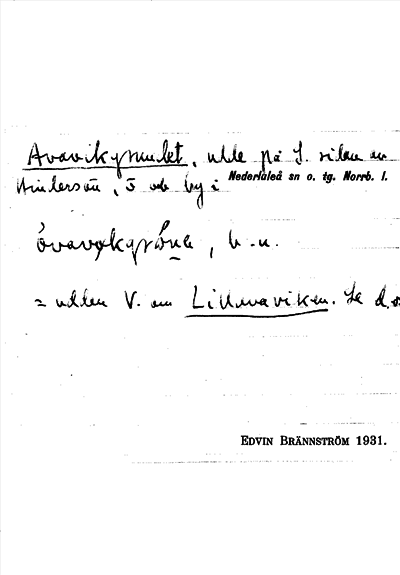 Avavikgrundet, udde på S. sidan av
Hindersön, ö och by i Nederluleå sn o. tg. Norrb. l.
b.u.
= udden V. om Lillavaviken. Se d.o
EDVIN BRÄNNSTRÖM 1931.